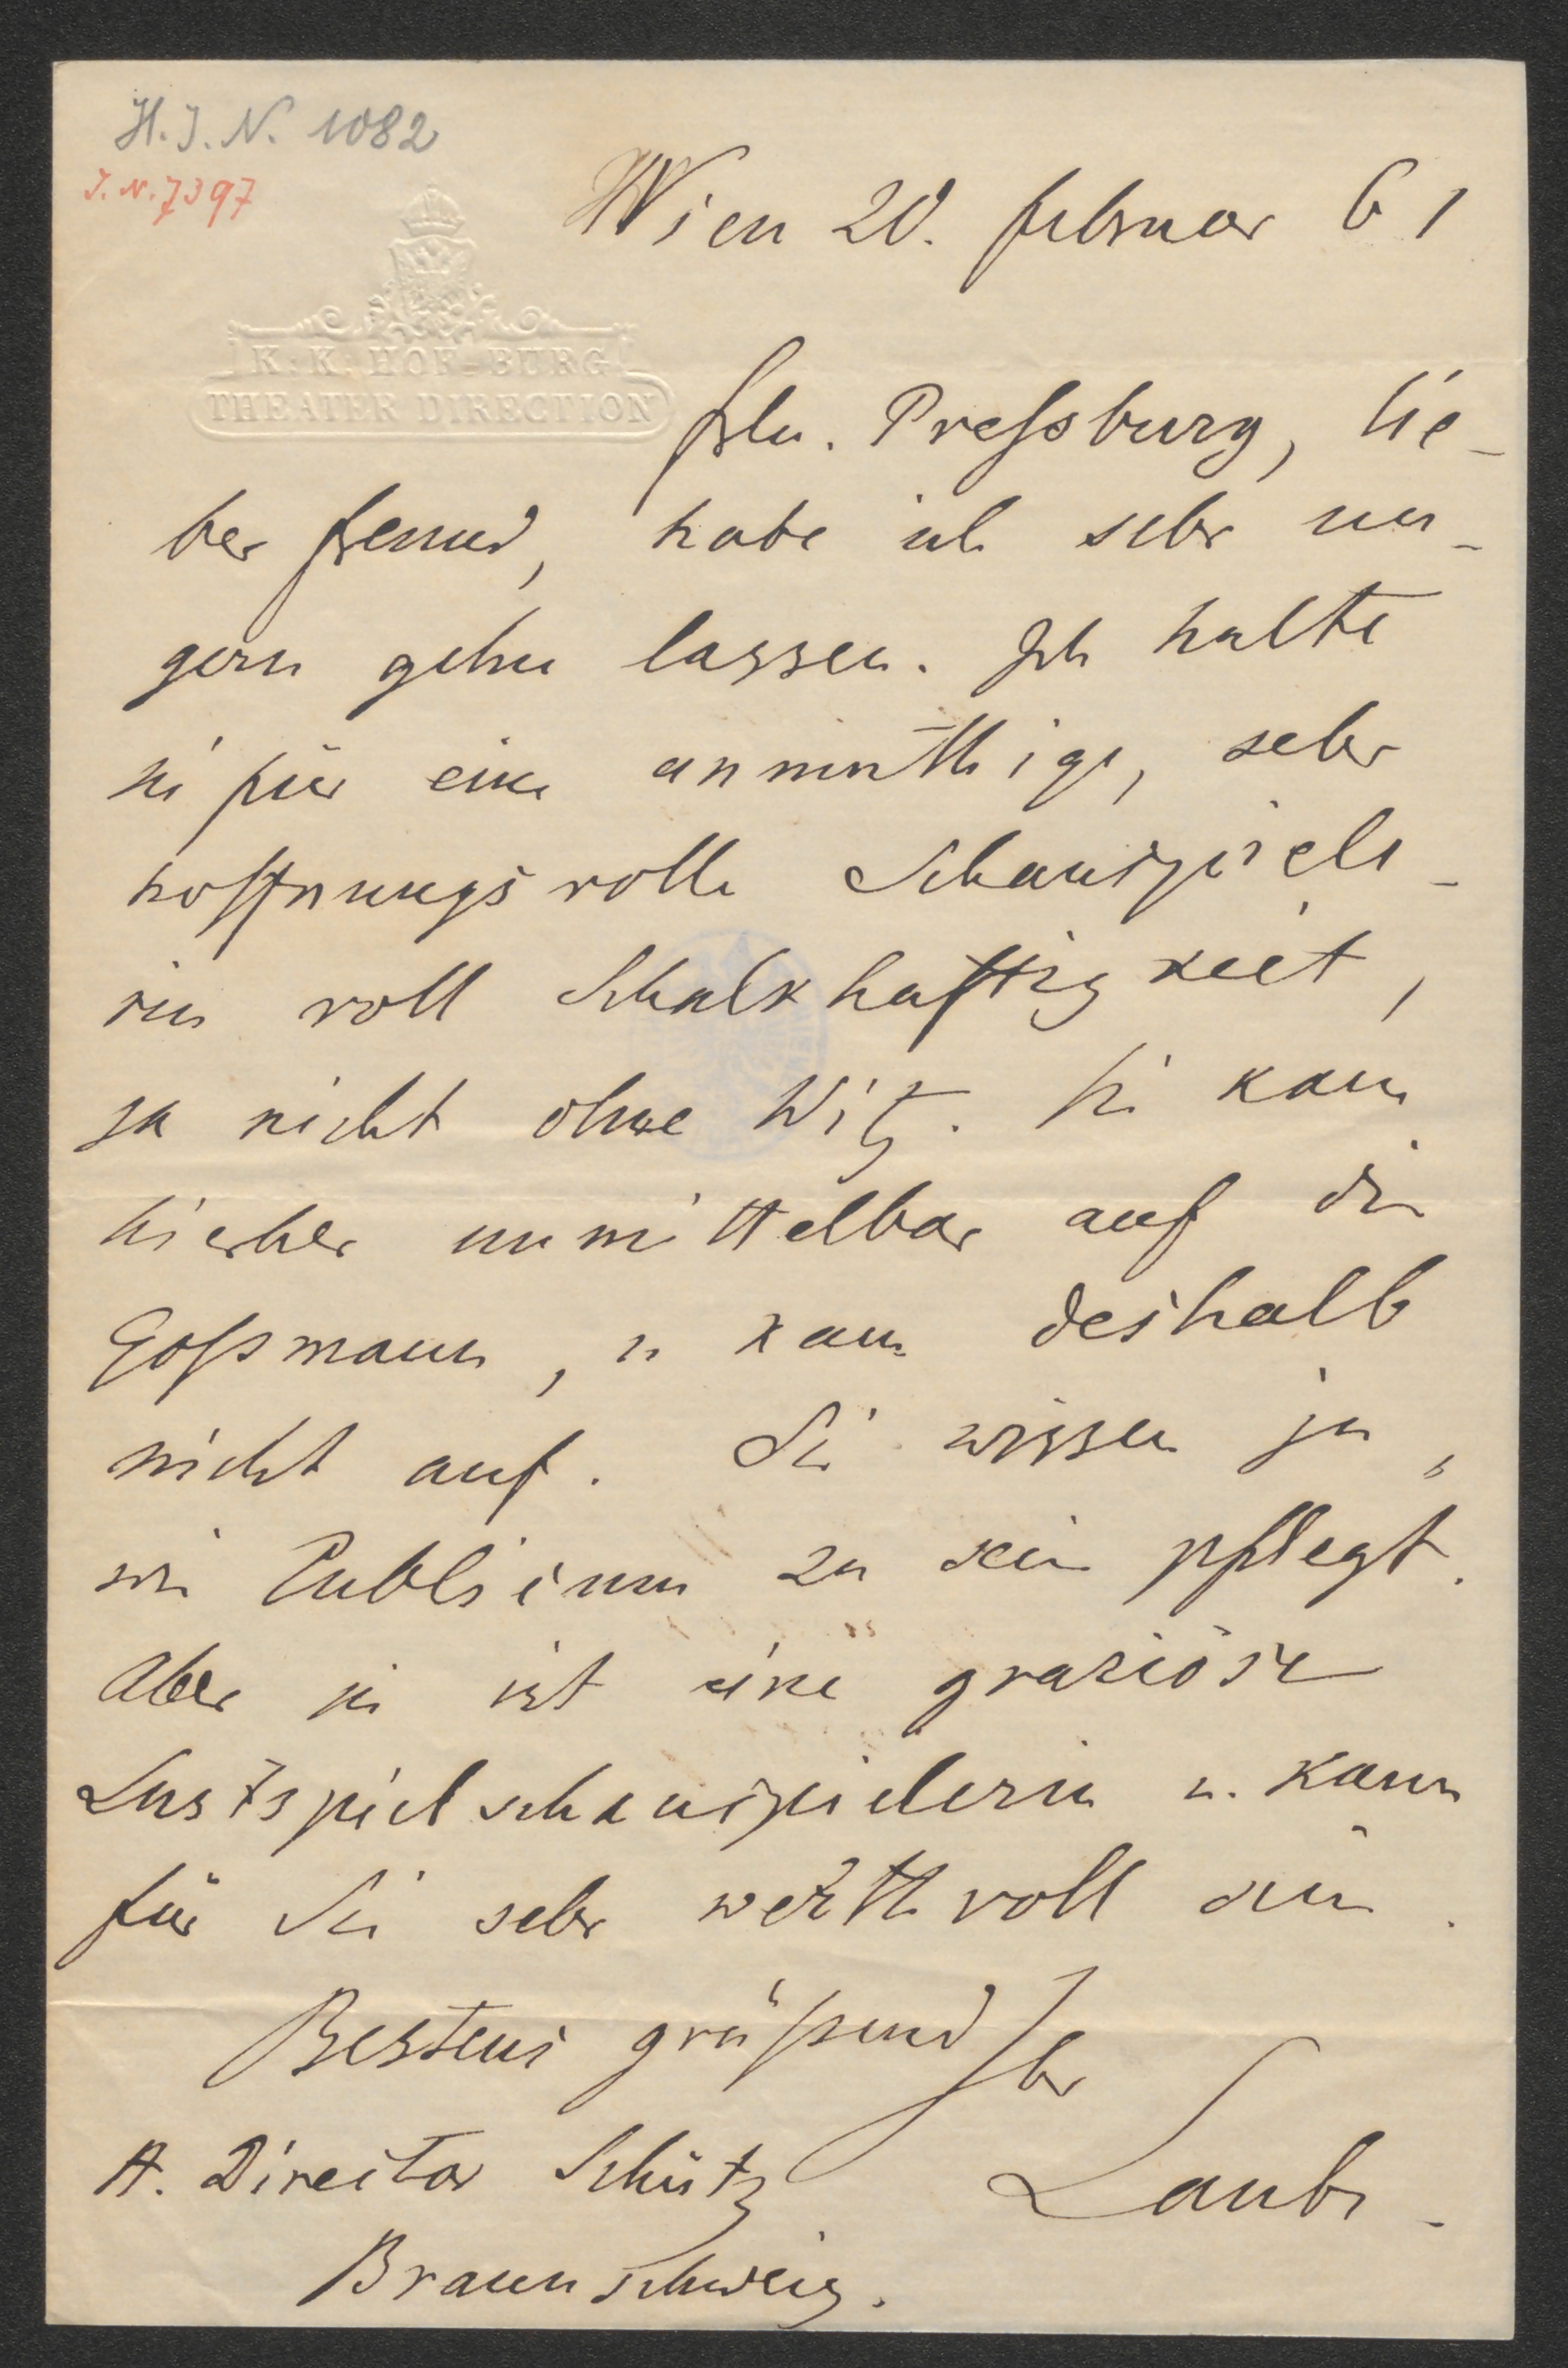 H. I. N. 1082
I. N. 7397
Wien 20. Februar 61
K: K: HOF=BURG
THEATER DIRECTION
Frln. Preſsburg, lie-
ber Freund, habe ich sehr un-
gern gehen lassen. Ich halte
sie für eine anmuthige, sehr
hoffnungsvolle Schauspiele-
rin voll Schalkhaftigkeit,
ja nicht ohne Witz. Sie kam
hierher unmittelbar auf die
Goſsmann, u kam deshalb
nicht auf. Sie wissen ja,
wie Publicum zu sein pflegt.
Aber sie ist eine graziöse
Lustspielschauspielerin u. kann
für Sie sehr werthvoll sein.
Bestens grüßend Ihr
Laube.
H. Director Schütz
Braunschweig.